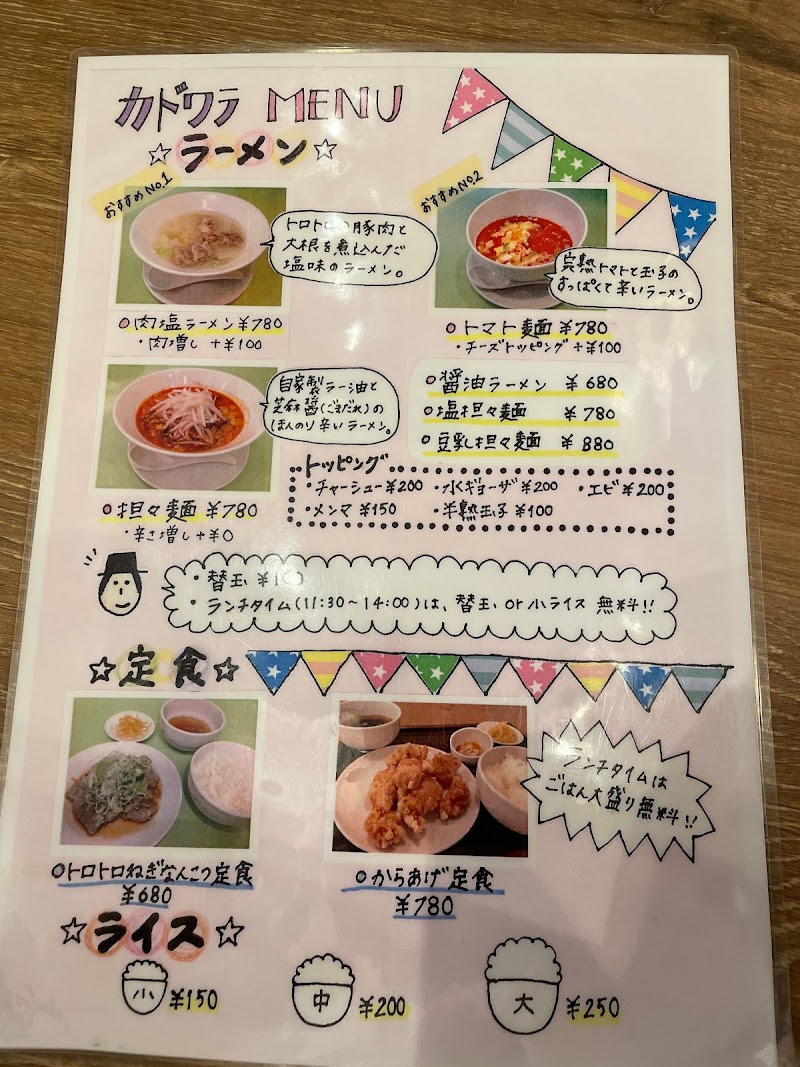 カドワラ MENU
☆ラーメン☆
おすすめNo.1
トロトロの豚肉と
大根を煮込んだ
塩味のラーメン。
肉塩ラーメン ¥780
・肉増し +¥100
おすすめNo.2
完熟トマトと玉子の
すっぱくて辛いラーメン。
トマト麺 ¥780
・チーズトッピング +¥100
自家製ラー油と
芝麻醤(ごまだれ)の
ほんのり辛いラーメン。
担々麺 ¥780
・辛さ増し +¥0
醤油ラーメン ¥680
塩担々麺 ¥780
豆乳担々麺 ¥880
トッピング
・チャーシュー ¥200 ・水ギョーザ ¥200 ・エビ ¥200
・メンマ ¥150 ・半熟玉子 ¥100
・替玉 ¥100
・ランチタイム(11:30~14:00)は、替玉 or 小ライス 無料!!
☆定食☆
トロトロねぎなんこつ定食
¥680
からあげ定食
¥780
ランチタイムは
ごはん大盛り無料!!
☆ライス☆
小 ¥150 中 ¥200 大 ¥250